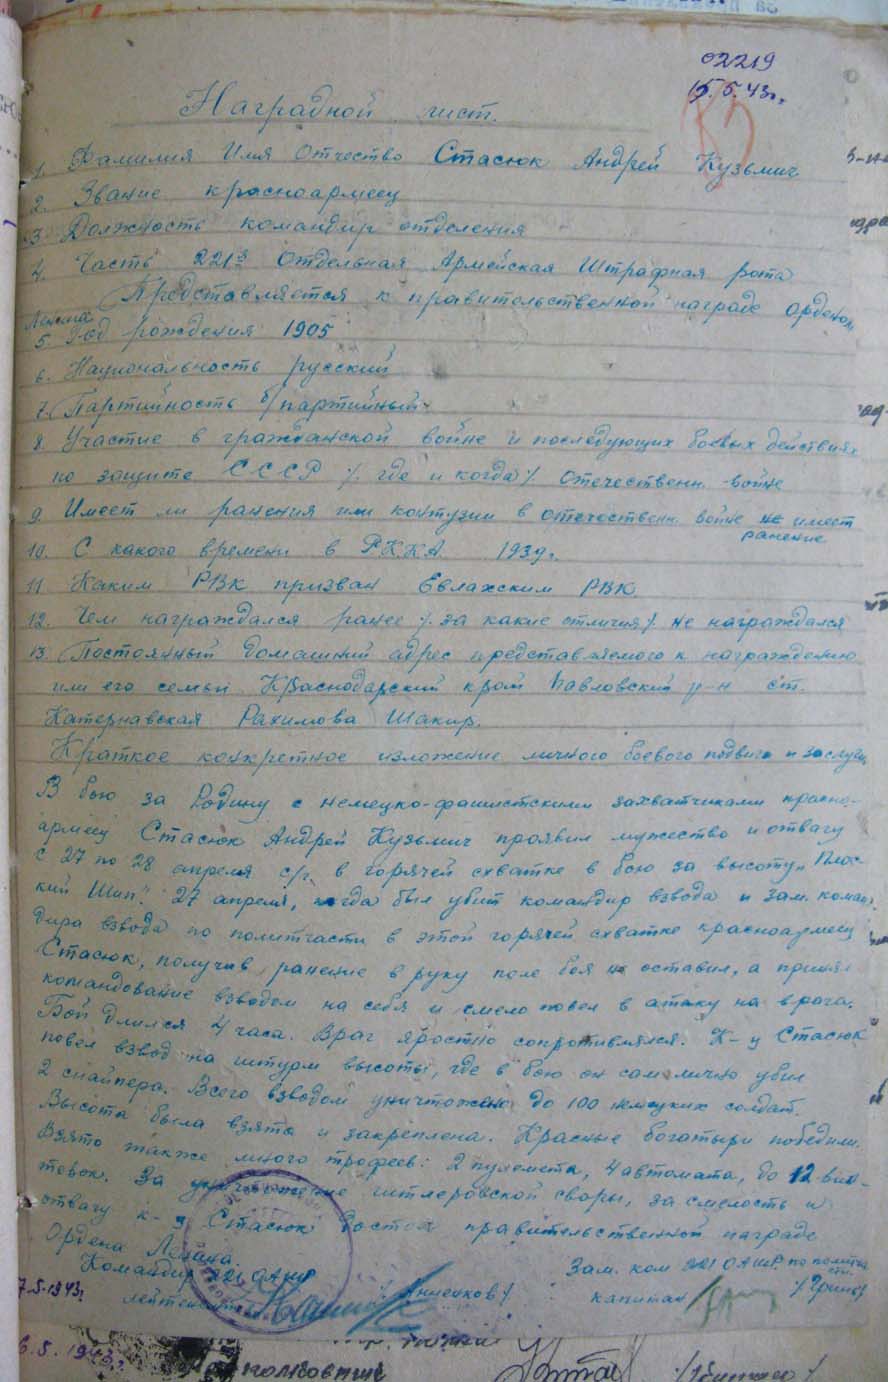 02219
15.5.43г.
Наградной лист.
1. Фамилия Имя Отчество Стасюк Андрей Кузьмич
2. Звание красноармеец
3. Должность командир отделения
4. Часть 221я Отдельная Армейская Штрафная рота
Представляется к правительственной награде орденом
Ленина
5. Год рождения 1905
6. Национальность русский
7. Партийность б/партийный
8. Участие в гражданской войне и последующих боевых действиях
по защите СССР /. где и когда /. Отечественн. войне
9. Имеет ли ранения или контузии в отечественн. войне не имеет
ранение
10. С какого времени в Р.К.К.А. 1939г.
11. Каким РВК призван Евлахским РВК.
12. Чем награждался ранее /. за какие отличия /. не награждался
13. Постоянный домашний адрес представляемого к награждению
или его семьи Краснодарский край Павловский р-н ст.
Катернавская Рахимова Шакир.
Краткое конкретное изложение личного боевого подвига и заслуги
В бою за Родину с немецко-фашистскими захватчиками красно-
армеец Стасюк Андрей Кузьмич проявил мужество и отвагу
с 27 по 28 апреля с/г. в горячей схватке в бою за высоту „Плос-
кий Шип". 27 апреля, когда был убит командир взвода и зам. коман-
дира взвода по политчасти в этой горячей схватке красноармеец
Стасюк, получив ранение в руку поле боя не оставил, а принял
командование взводом на себя и смело повел в атаку на врага.
Бой длился 4 часа. Враг яростно сопротивлялся. К-ц Стасюк
повел взвод на штурм высоты, где в бою он сам лично убил
2 снайпера. Всего взводом уничтожено до 100 немецких солдат.
Высота была взята и закреплена. Красные богатыри победили.
Взято также много трофеев: 2 пулемета, 4 автомата, до 12 вин-
товок. За уничтожение гитлеровской своры, за смелость и
отвагу к-ц Стасюк достоин правительственной награде
Ордена Ленина.
Командир 221 ОАШР Зам. ком 221 ОАШР по политча
сти
7.5.1943г. лейтенант /Анненков/ капитан
6.5.1943г.